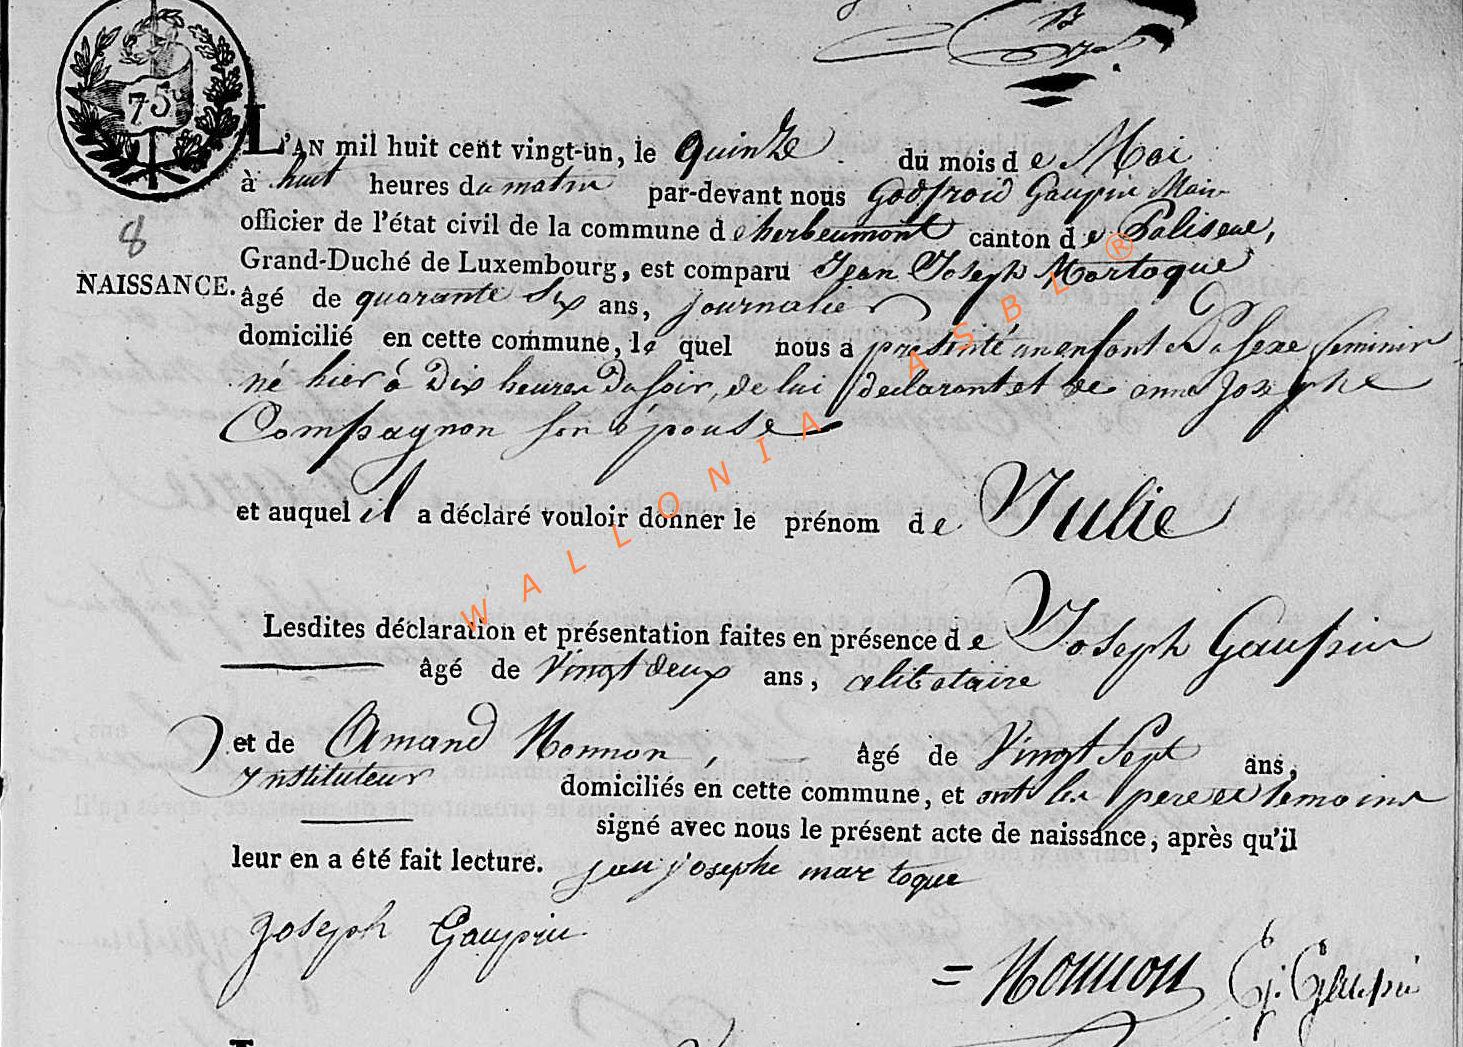 75
8
NAISSANCE.
L'AN mil huit cent vingt-un, le quinze du mois de Mai
à huit heures du matin par-devant nous Godfroid Gaupin Maire
officier de l'état civil de la commune de herbeumont canton de Paliseul,
Grand-Duché de Luxembourg, est comparu Jean Joseph Martoque
âgé de quarante Six ans, journalier
domicilié en cette commune, le quel nous a présenté un enfant du Sexe feminin
né hier à Dix heures Du soir, de lui declarant et de anne Josephe
Compagnon son épouse
et auquel il a déclaré vouloir donner le prénom de Julie
Lesdites déclaration et présentation faites en présence de Joseph Gaupin
âgé de Vingt deux ans, celibataire
et de Amand Monnon, âgé de Vingt Sept ans,
Instituteur domiciliés en cette commune, et ont les pere et temoins
signé avec nous le présent acte de naissance, après qu'il
leur en a été fait lecture. jean josephe martoque
Joseph Gaupin
= Monnon G. Gaupin
WALLONIA ASBL ®